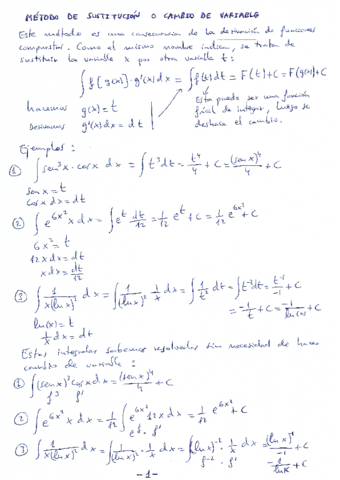 MÉTODO DE SUSTITUCIÓN O CAMBIO DE VARIABLE
Este método es una consecuencia de la derivación de funciones
compuestas. Como el mismo nombre indica, se trata de
sustituir la variable x por otra variable t:
∫ f[g(x)]·g'(x)dx = ∫ f(t)dt = F(t)+C = F(g(x))+C
hacemos g(x)=t
Derivamos g'(x)dx = dt
Esta puede ser una función
fácil de integrar, luego se
deshace el cambio.
Ejemplos:
① ∫ sen³x·cosx dx = ∫ t³dt = t⁴/4 + C = (senx)⁴/4 + C
senx = t
cosx dx = dt
② ∫ e^(6x²) x dx = ∫ e^t dt/12 = 1/12 e^t + C = 1/12 e^(6x²) + C
6x² = t
12xdx = dt
xdx = dt/12
③ ∫ 1/(x(lnx)²) dx = ∫ 1/(lnx)² · 1/x dx = ∫ 1/t² dt = ∫ t⁻²dt = t⁻¹/-1 + C
= -1/t + C = -1/ln(x) + C
ln(x) = t
1/x dx = dt
Estas integrales sabemos resolverlas sin necesidad de hacer
cambio de variable:
① ∫ (senx)³cosx dx = (senx)⁴/4 + C
f³ f'
② ∫ e^(6x²) x dx = 1/12 ∫ e^(6x²) 12x dx = 1/12 e^(6x²) + C
e^f · f'
③ ∫ 1/(x(lnx)²) dx = ∫ 1/(lnx)² · 1/x dx = ∫ (lnx)⁻² · 1/x dx = (lnx)⁻¹/-1 + C
f⁻² · f'
-1/lnx + C
-1-